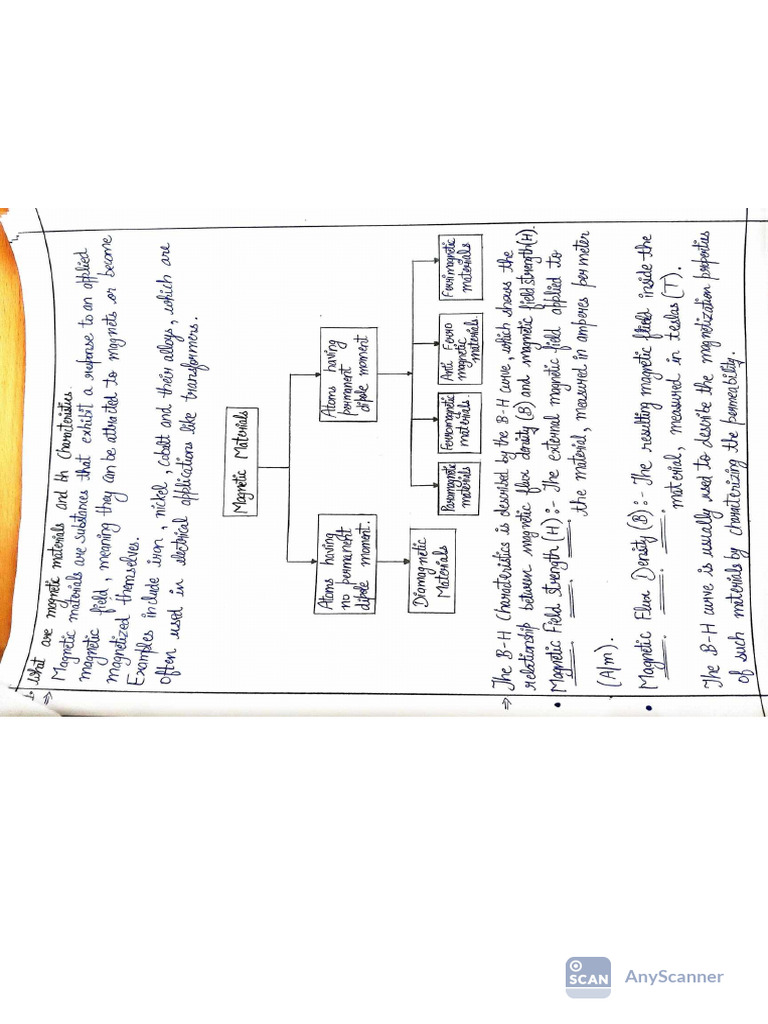 1. What are magnetic materials and bh Charateristics.
⇒ Magnetic materials are substances that exhibit a response to an applied
magnetic field, meaning they can be attracted to magnets or become
magnetized themselves.
Examples include iron, nickel, cobalt and their alloys, which are
often used in electrical applications like transformers.
Magnetic Materials
Atoms having
no permanent
dipole moment.
Atoms having
permanent
dipole moment
Diamagnetic
Materials
Paramagnetic
materials
Ferromagnetic
materials
Anti Ferro
magnetic
materials
Ferrimagnetic
materials
⇒ The B-H Characteristics is described by the B-H curve, which shows the
relationship between magnetic flux density (B) and magnetic field strength (H).
• Magnetic Field Strength (H) :- The external magnetic field applied to
the material, measured in amperes per meter
(A/m).
• Magnetic Flux Density (B) :- The resulting magnetic inside the
material, measured in teslas (T).
The B-H curve is usually used to describe the magnetization properties
of such materials by charaterizing the permeability.
SCAN AnyScanner